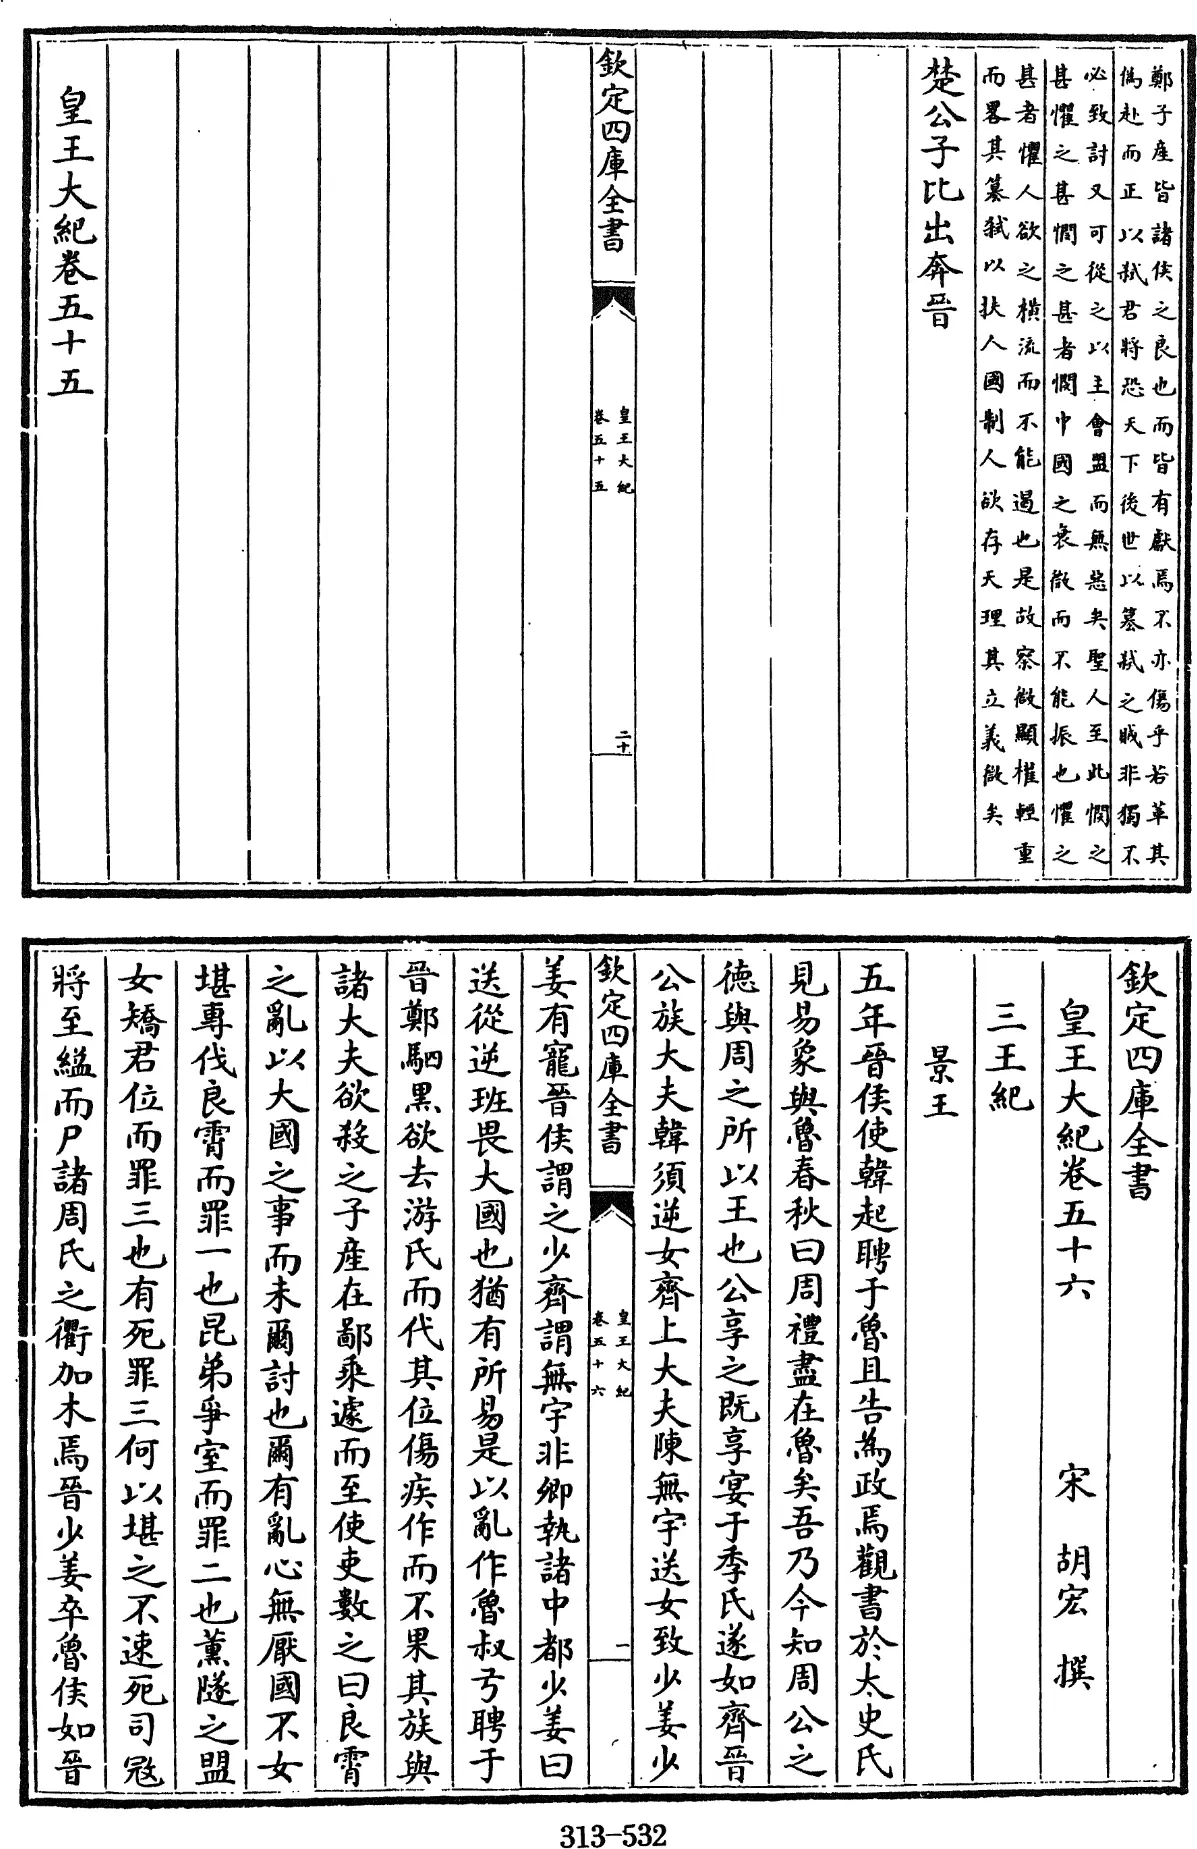 鄭子產皆諸侯之良也而皆有獻焉不亦傷乎若革其
僞赴而正以弑君將恐天下後世以篡弑之賊非獨不
必致討又可從之以主會盟而無惡矣聖人至此憫之
甚懼之甚憫之甚者憫中國之衰微而不能振也懼之
甚者懼人欲之橫流而不能遏也是故察微顯權輕重
而畧其篡弑以扶人國制人欲存天理其立義微矣
楚公子比出奔晉
欽定四庫全書
皇王大紀
卷五十五
二十
皇王大紀卷五十五
欽定四庫全書
皇王大紀卷五十六
宋 胡宏 撰
三王紀
景王
五年晉侯使韓起聘于魯且告為政焉觀書於太史氏
見易象與魯春秋曰周禮盡在魯矣吾乃今知周公之
德與周之所以王也公享之既享宴于季氏遂如齊晉
公族大夫韓須逆女齊上大夫陳無宇送女致少姜少
欽定四庫全書
皇王大紀
卷五十六
一
姜有寵晉侯謂之少齊謂無宇非卿執諸中都少姜曰
送從逆班畏大國也猶有所易是以亂作魯叔弓聘于
晉鄭駟黑欲去游氏而代其位傷疾作而不果其族與
諸大夫欲殺之子產在鄙乘遽而至使吏數之曰良霄
之亂以大國之事而未爾討也爾有亂心無厭國不女
堪專伐良霄而罪一也昆弟爭室而罪二也薰隧之盟
女矯君位而罪三也有死罪三何以堪之不速死司寇
將至縊而尸諸周氏之衢加木焉晉少姜卒魯侯如晉
313-532